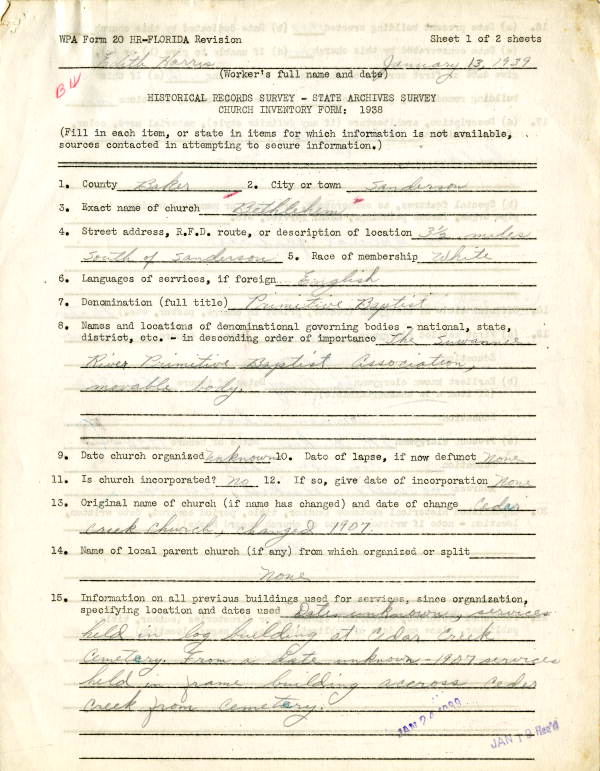 WPA Form 20 HR-FLORIDA Revision Sheet 1 of 2 sheets
Edith Harris January 13, 1939
(Worker's full name and date)
BW
HISTORICAL RECORDS SURVEY - STATE ARCHIVES SURVEY
CHURCH INVENTORY FORM: 1938
(Fill in each item, or state in items for which information is not available,
sources contacted in attempting to secure information.)
1. County Baker 2. City or town Sanderson
3. Exact name of church Bethlehem
4. Street address, R.F.D. route, or description of location 3½ miles
South of Sanderson 5. Race of membership White
6. Languages of services, if foreign English
7. Denomination (full title) Primitive Baptist
8. Names and locations of denominational governing bodies - national, state,
district, etc. - in descending order of importance The Suwannee
River Primitive Baptist Association,
movable body.
9. Date church organized unknown 10. Date of lapse, if now defunct None
11. Is church incorporated? No 12. If so, give date of incorporation None
13. Original name of church (if name has changed) and date of change Cedar
Creek Church, changed 1907.
14. Name of local parent church (if any) from which organized or split
None
15. Information on all previous buildings used for services, since organization,
specifying location and dates used Dates unknown, services
held in log building at Cedar Creek
Cemetary. From a date unknown - 1907 services
held in frame building accross ceder
Creek from Cemetary.
JAN 24 1939
JAN 19 Rec'd